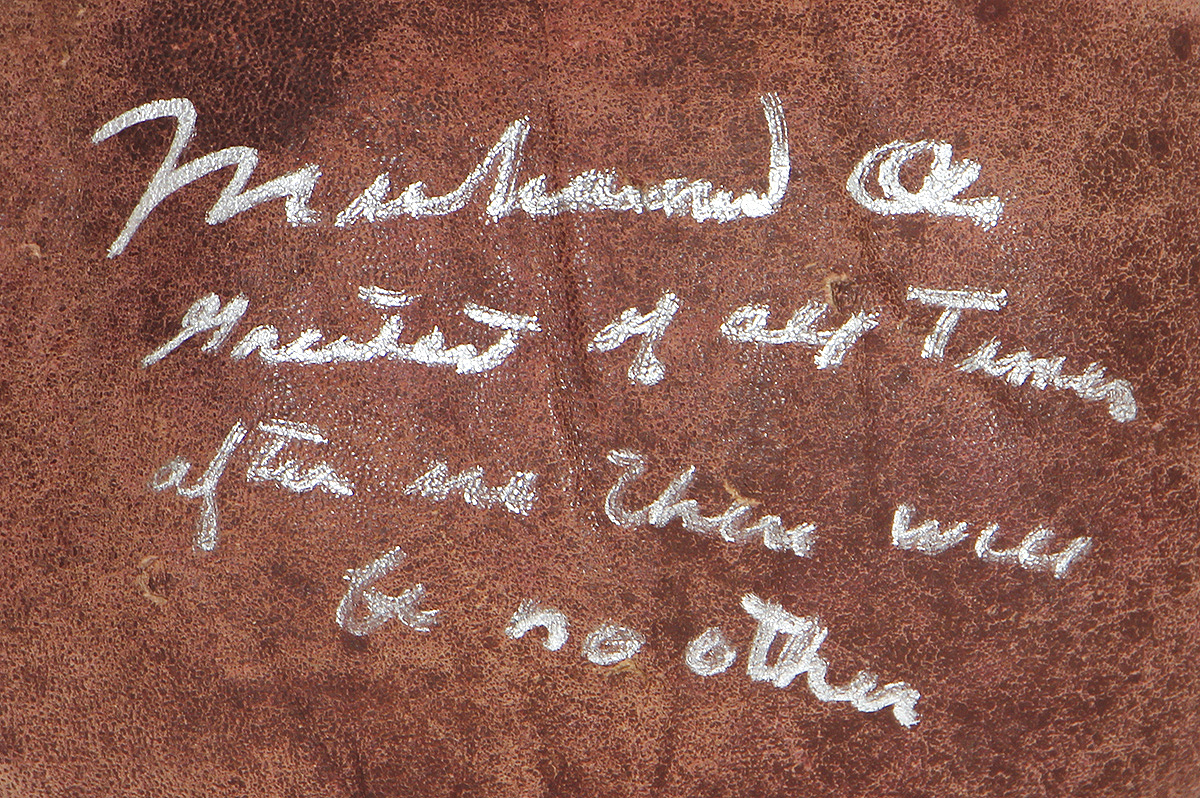 Muhammad Ali
Greatest of all Times
after me there will
be no other